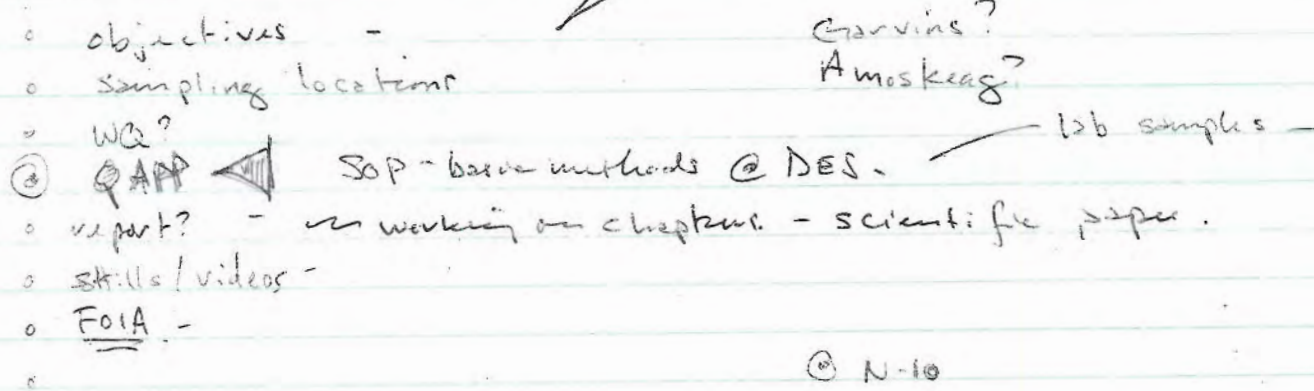 objectives - Garvins?
sampling locations Amoskeag?
WQ?
lab samples -
QAPP SOP - basic methods @ DES.
report? - working on chapters - scientific paper.
stills/videos -
FOIA -
@ N-10